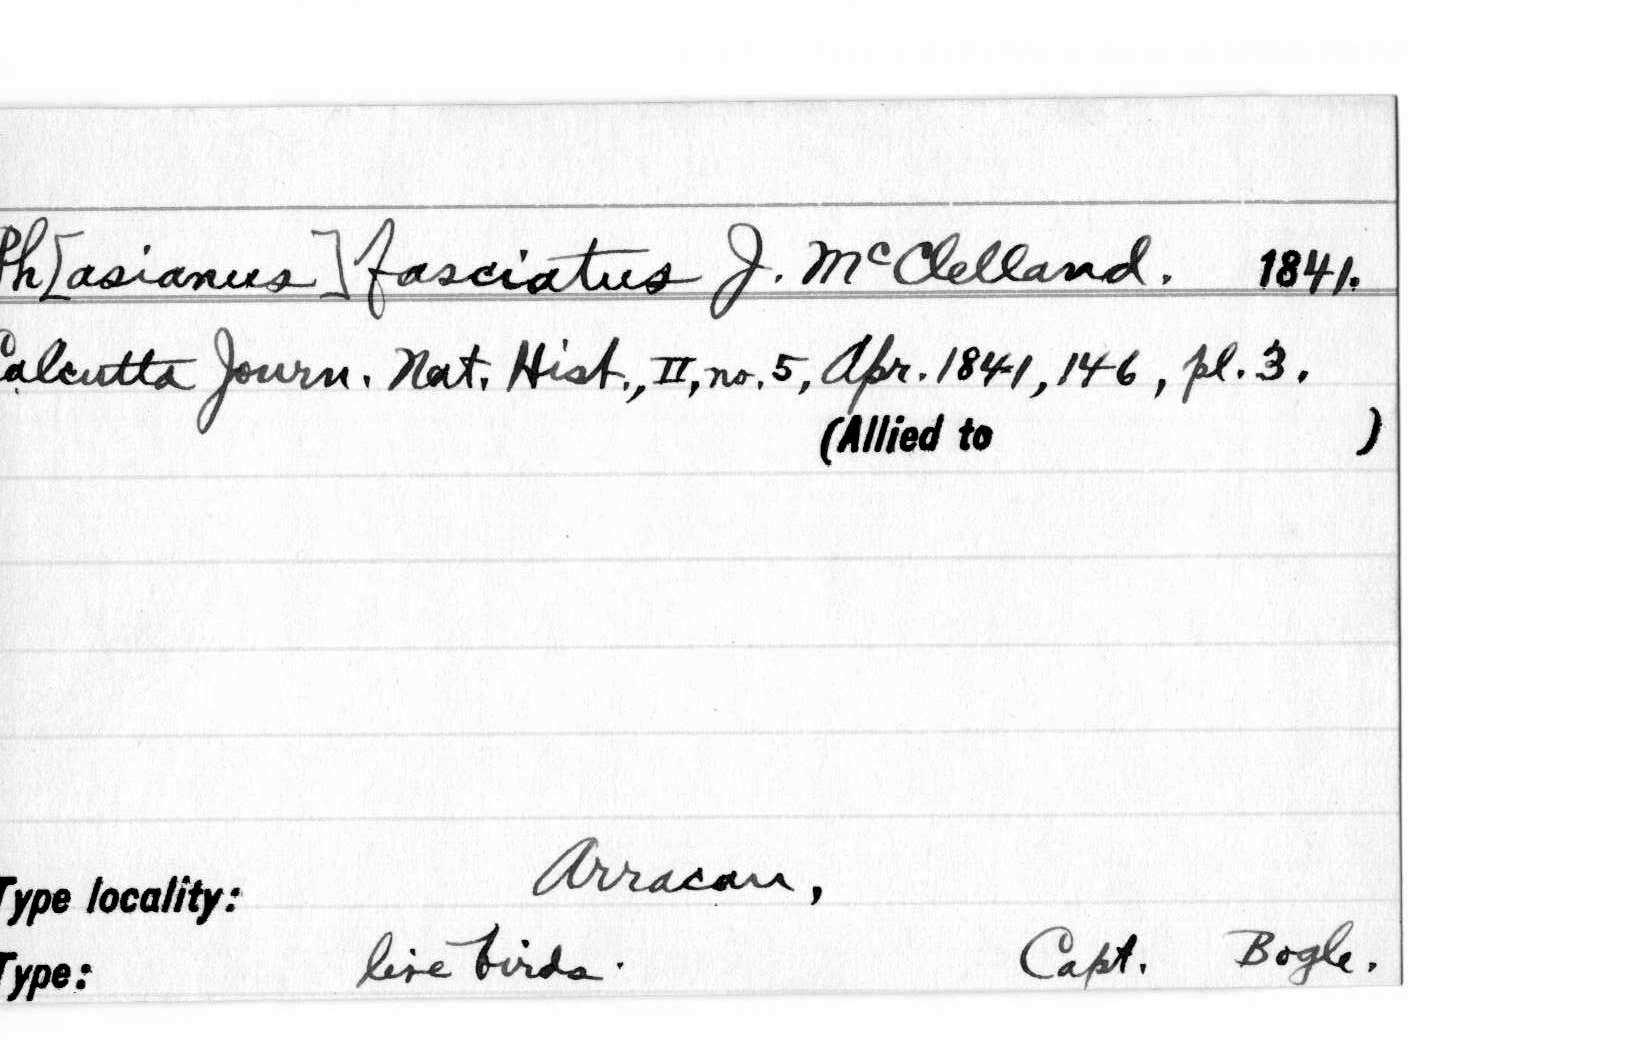 Ph[asianus] fasciatus J. McClelland. 1841.
Calcutta Journ. Nat. Hist., II, no. 5, Apr. 1841, 146, pl. 3.
(Allied to )
Type locality: Arracan,
Type: live birds. Capt. Bogle.